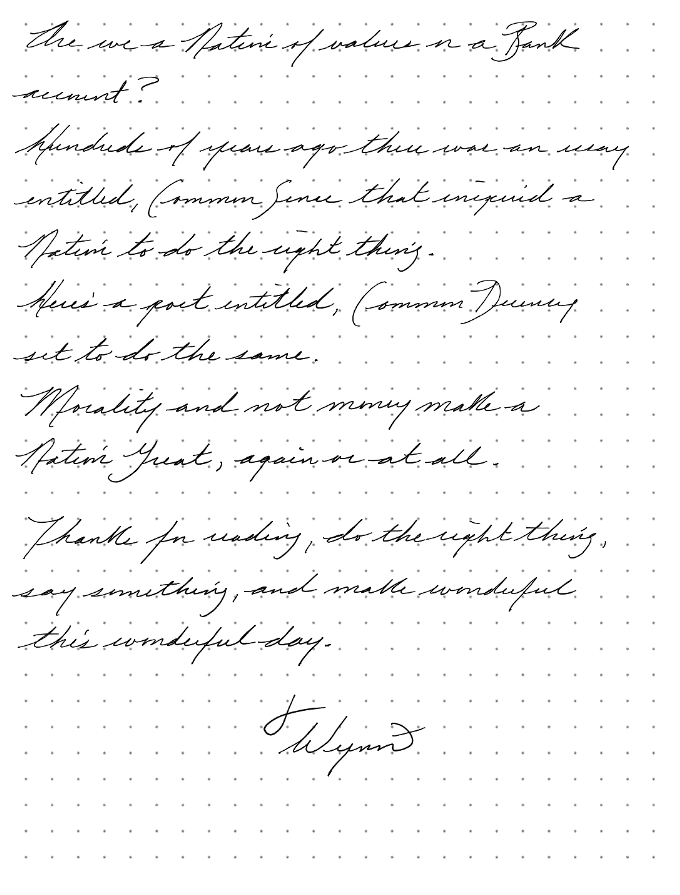 Are we a Nation of values or a Bank
account?
Hundreds of years ago there was an essay
entitled, Common Sense that inspired a
Nation to do the right thing.
Here's a post entitled, Common Decency
set to do the same.
Morality and not money make a
Nation Great, again or at all.
Thanks for reading, do the right thing,
say something, and make wonderful
this wonderful day.
Wynn